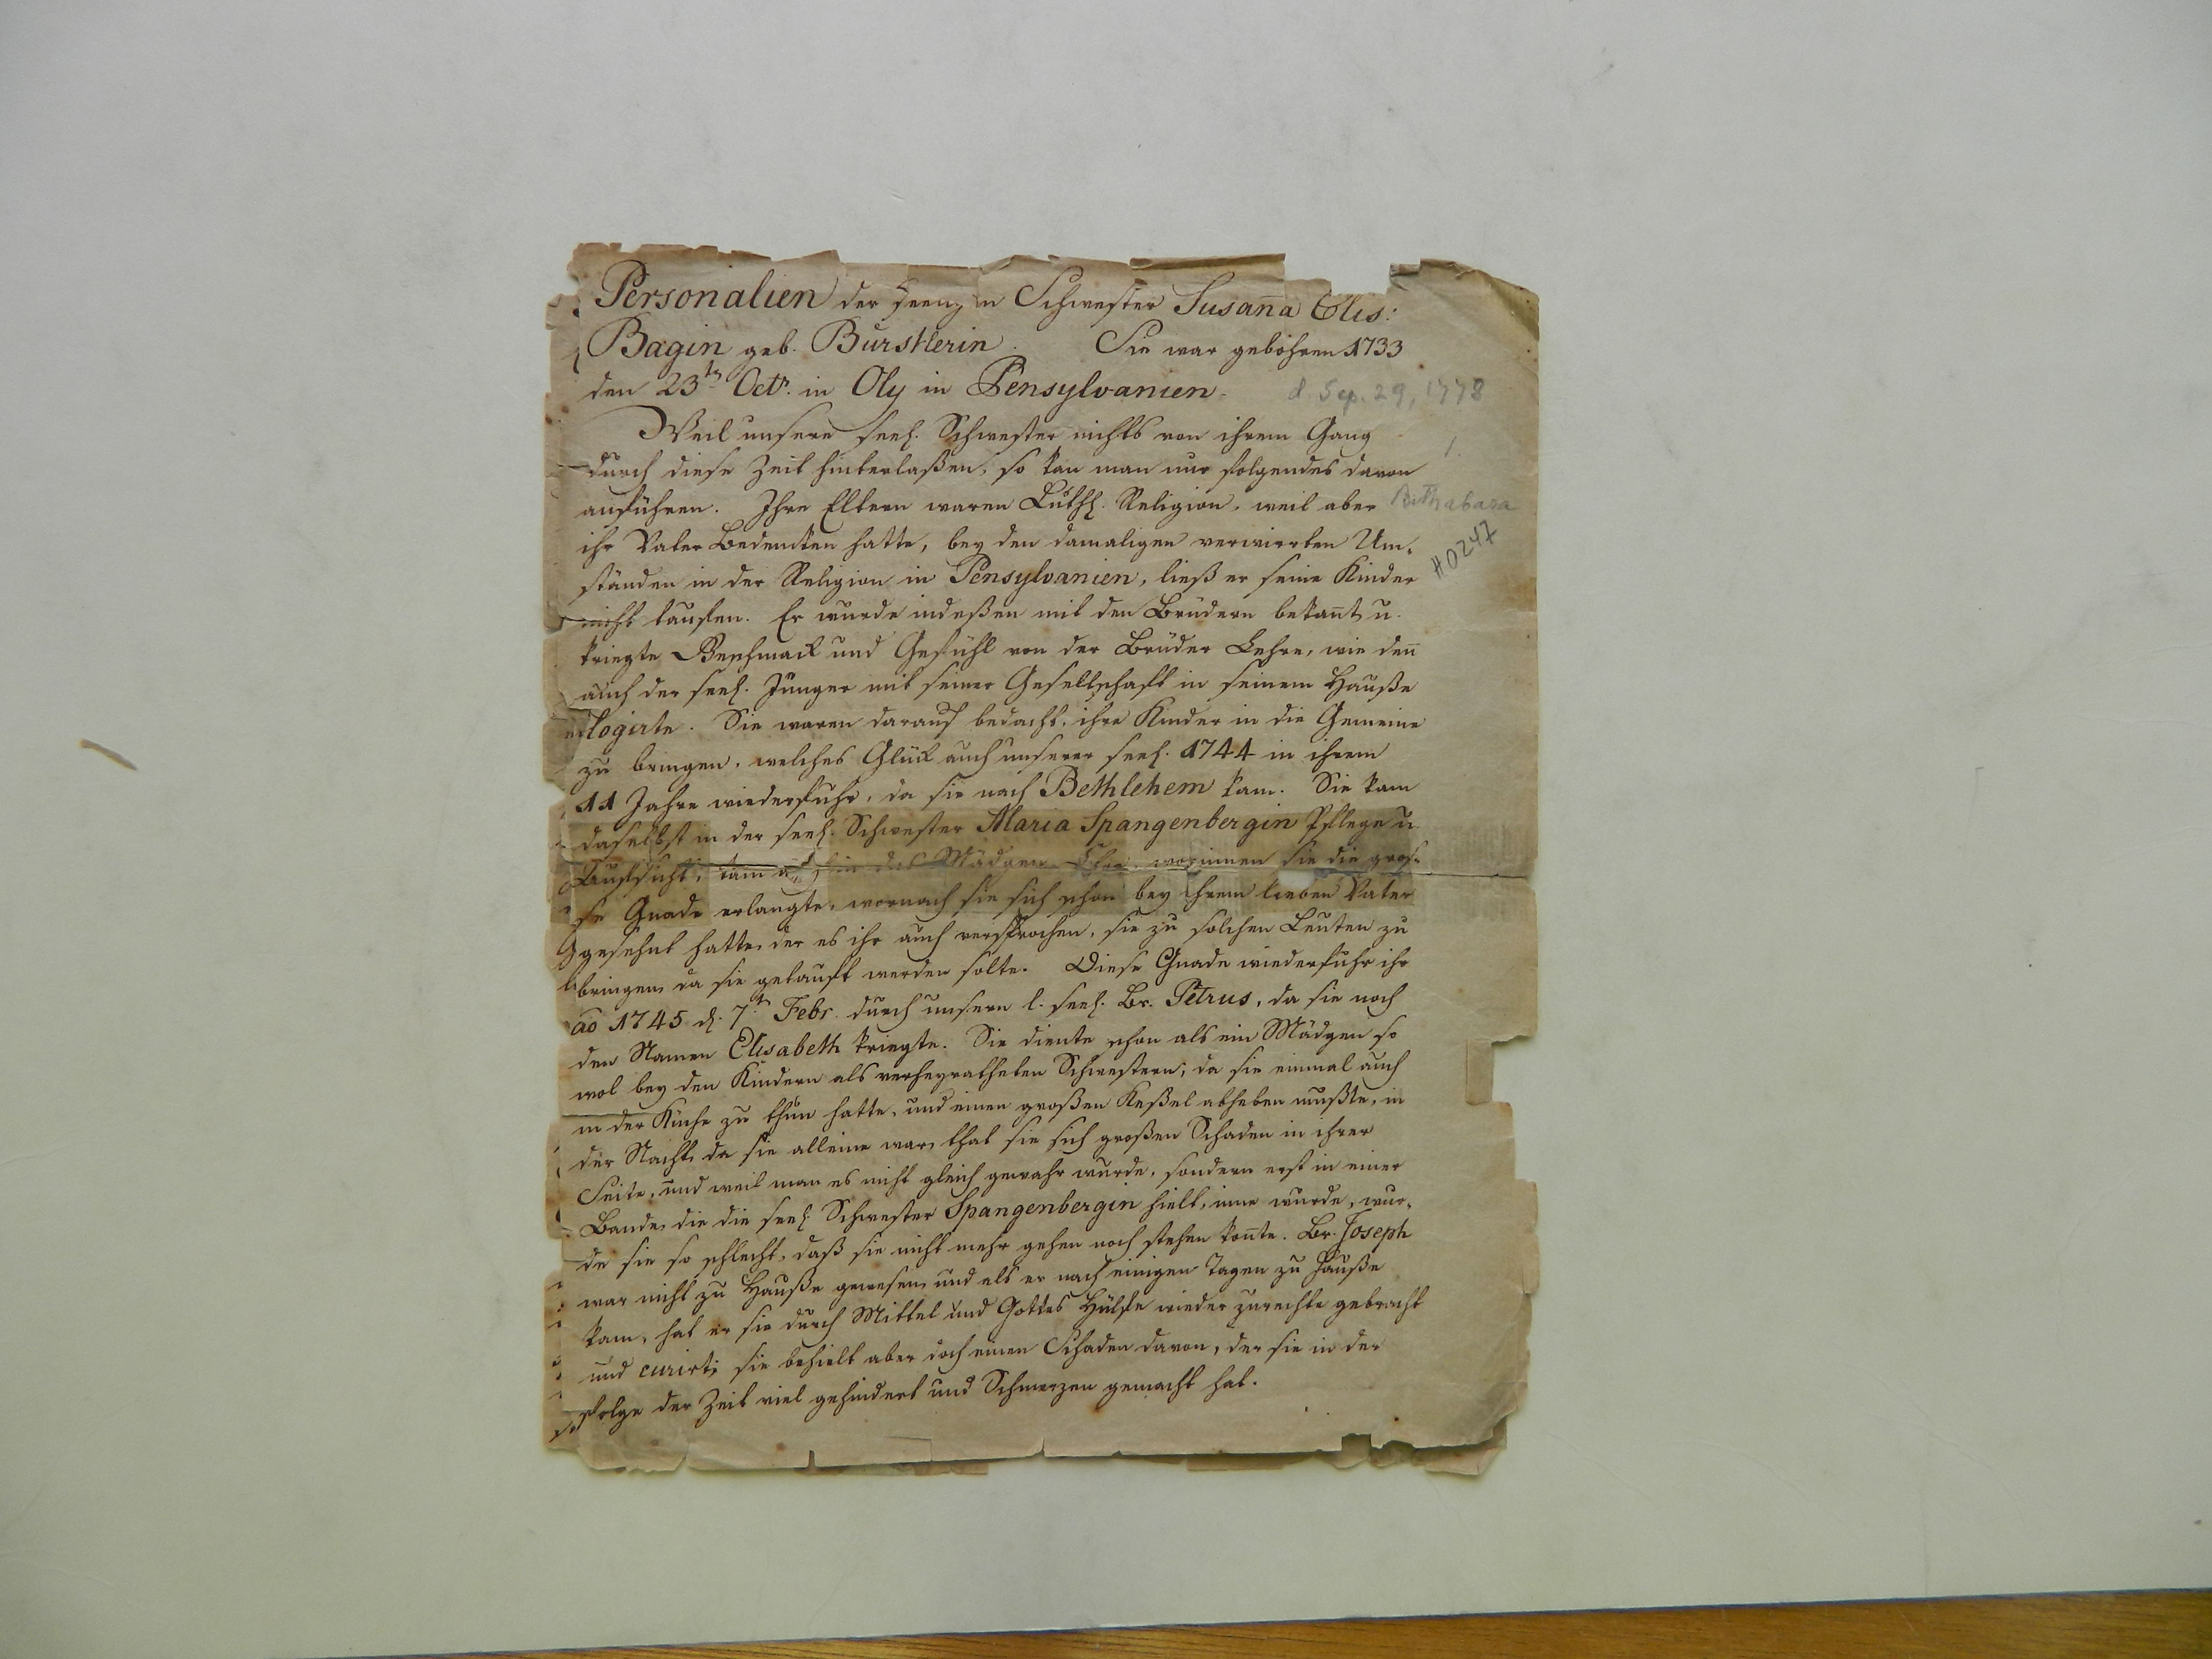 Personalien der seeligen Schwester Susan̄a Elis:
Bagin geb. Bürstlerin. Sie war gebohren 1733
den 23ten Octr. in Oly in Pensylvanien.
d. Sep. 29, 1778
Weil unsere seel. Schwester nichts von ihrem Gang
durch diese Zeit hinterlaßen, so kan man nur folgendes davon
anführen. Ihre Eltern waren Luth. Religion, weil aber
Bethabara
ihr Vater Bedencken hatte, bey den damaligen verwirrten Um-
H0247
ständen in der Religion in Pensylvanien, ließ er seine Kinder
nicht tauffen. Er wurde indeßen mit den Brüdern bekan̄t u.
kriegte Geschmack und Gefühl von der Brüder Lehre, wie den̄
auch der seel. Jünger mit seiner Gesellschaft in seinem Hauße
logirte. Sie waren darauf bedacht, ihre Kinder in die Gemeine
zu bringen, welches Glük auch unserer seel. 1744 in ihrem
11 Jahre wiederfuhr, da sie nach Bethlehem kam. Sie kam
daselbst in der seel. Schwester Maria Spangenbergin Pflege u.
Aufsicht, kam in das Mädgen Chor, worinnen sie die gros-
se Gnade erlangte, wornach sie sich schon bey ihrem lieben Vater
gesehnt hatte, der es ihr auch versprochen, sie zu solchen Leuten zu
bringen, da sie getauft werden solte. Diese Gnade wiederfuhr ihr
ao 1745 d. 7t Febr. durch unsern l. seel. Br. Petrus, da sie noch
den Namen Elisabeth kriegte. Sie diente schon als ein Mädgen so
wol bey den Kindern als verheyratheten Schwestern; da sie einmal auch
in der Küche zu thun hatte, und einen großen Keßel abheben mußte, in
der Nacht, da sie alleine war, that sie sich großen Schaden in ihrer
Seite, und weil man es nicht gleich gewahr wurde, sondern erst in einer
Bande, die die seel. Schwester Spangenbergin hielt, inne wurde, wur-
de sie so schlecht, daß sie nicht mehr gehen noch stehen kon̄te. Br. Joseph
war nicht zu Hauße gewesen, und als er nach einigen Tagen zu Hauße
kam, hat er sie durch Mittel und Gottes Hülfe wieder zurechte gebracht
und curirt; sie behielt aber doch einen Schaden davon, der sie in der
Folge der Zeit viel gehindert und Schmerzen gemacht hat.